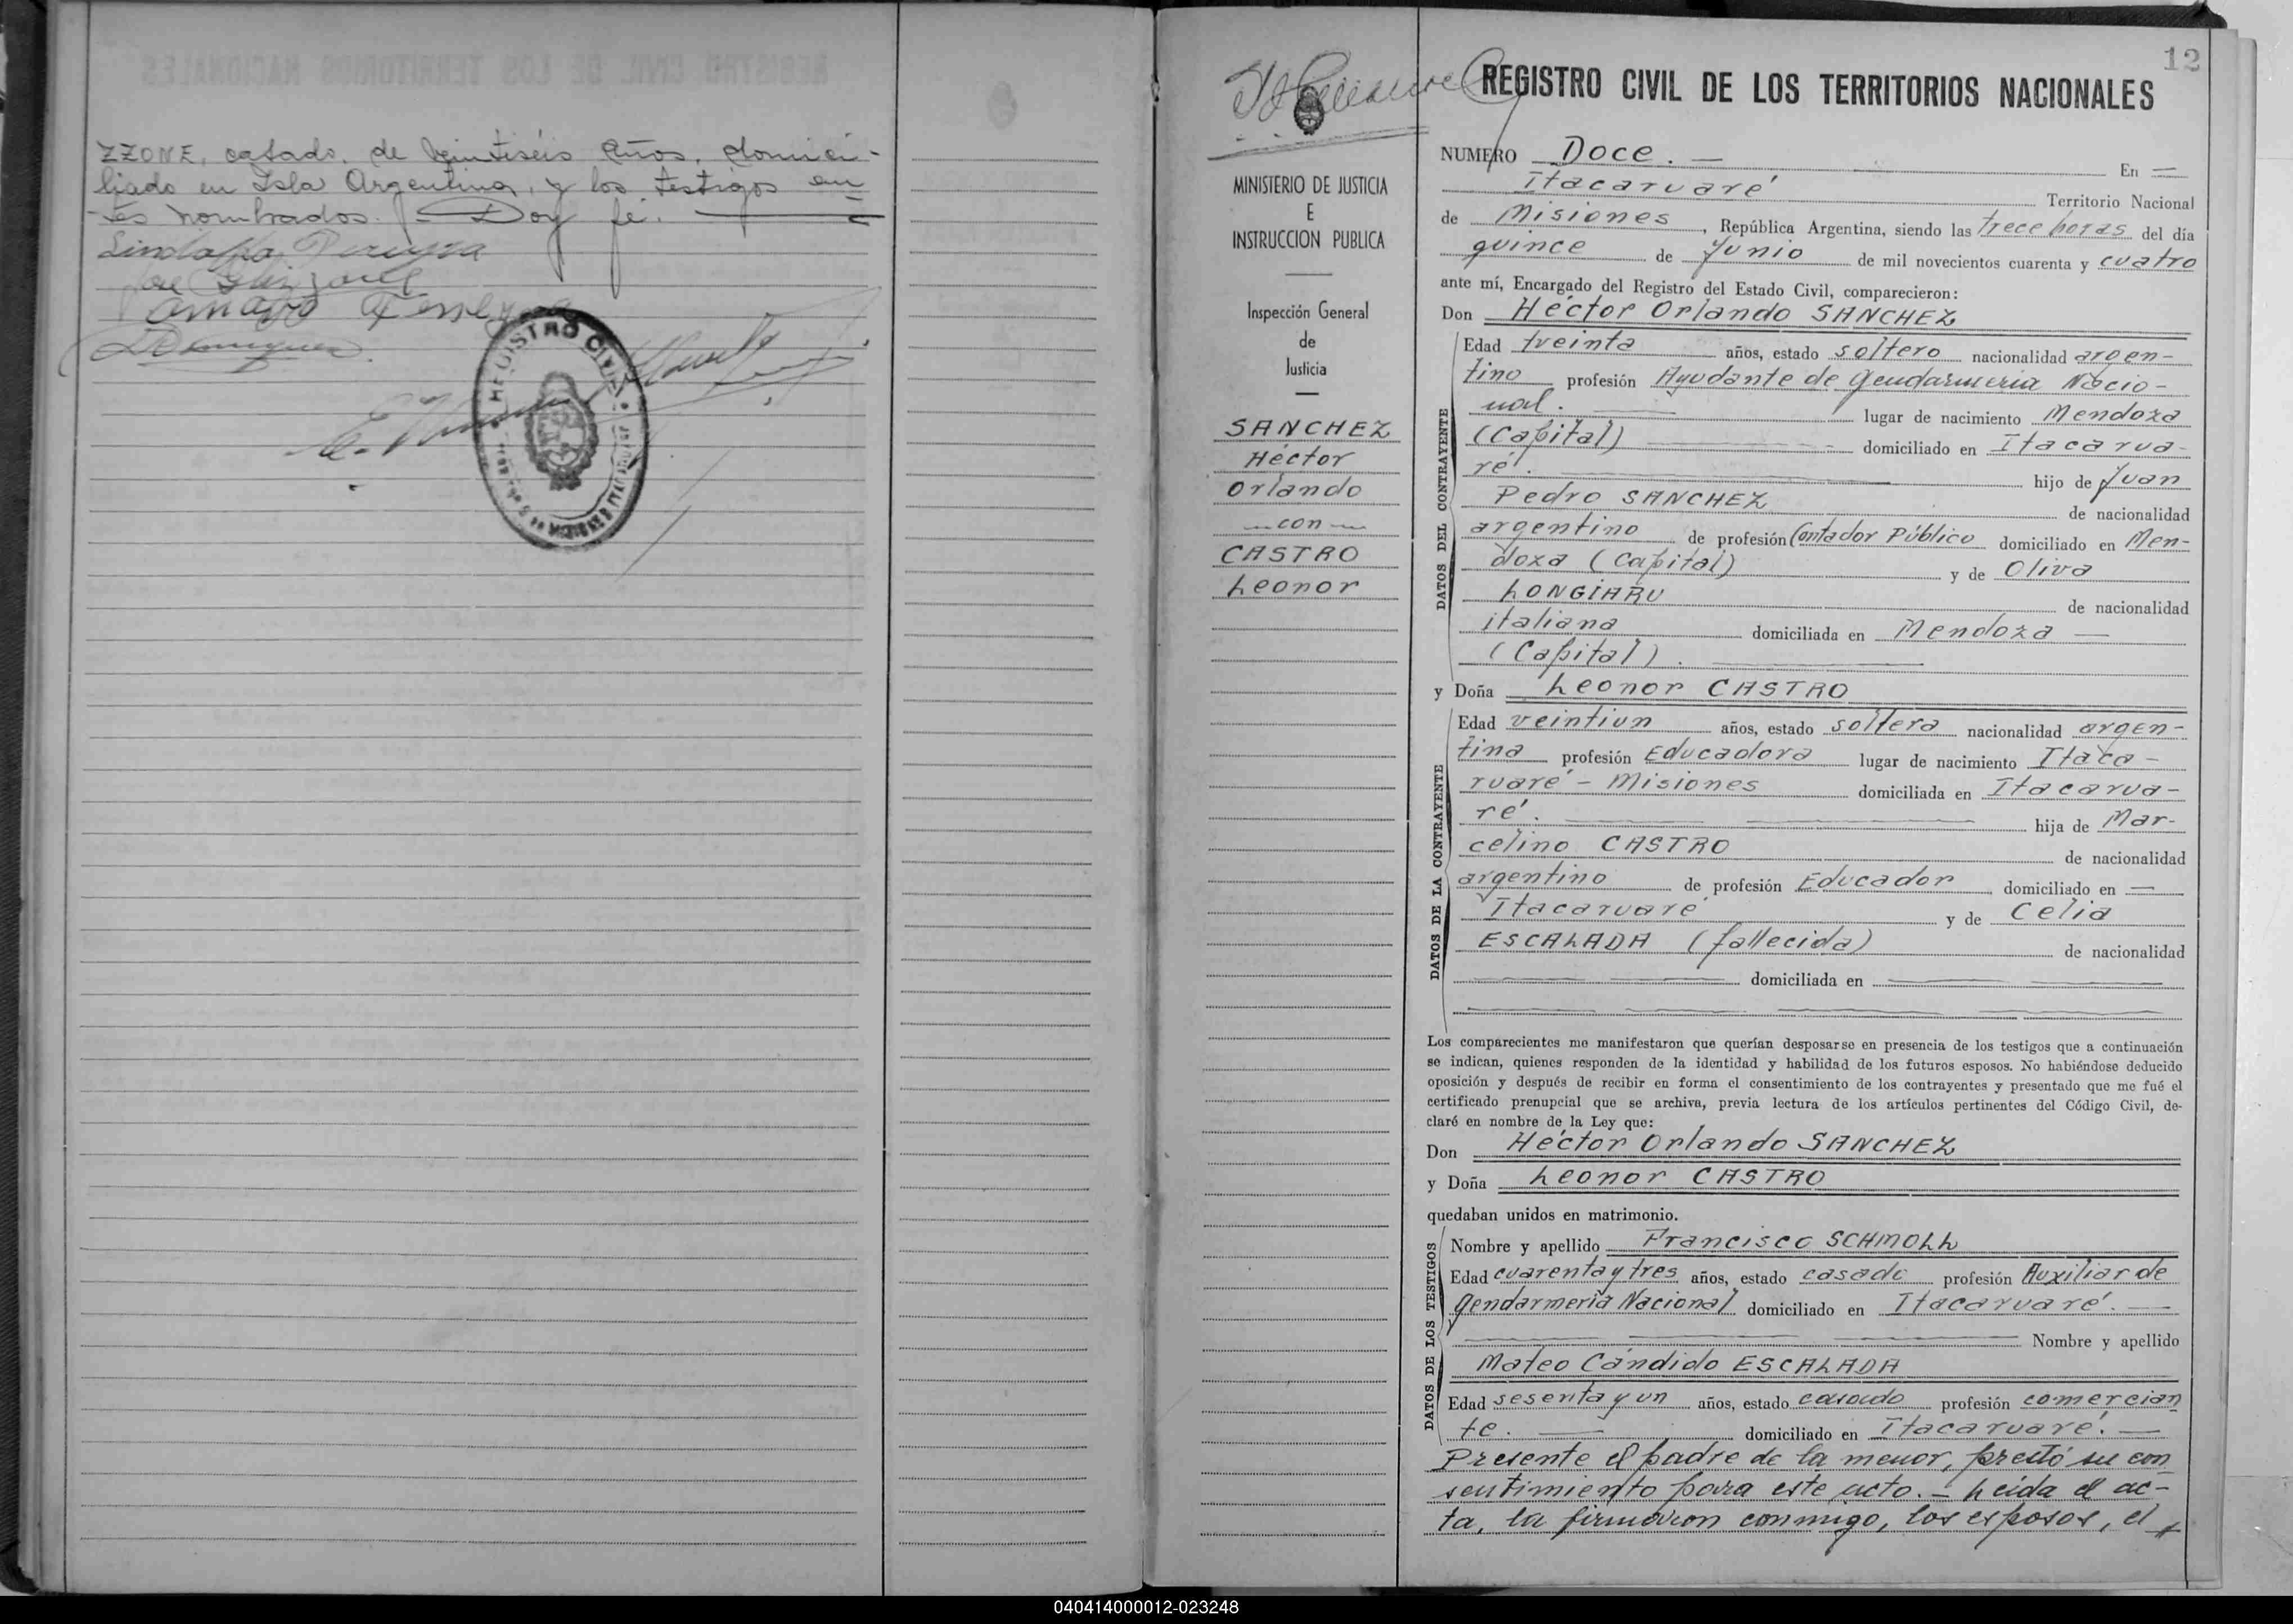 ZZONE, casado, de veintiséis años, domici-
liado en Isla Argentina, y los testigos an-
tes nombrados. Doy fé.
REGISTRO CIVIL
12
REGISTRO CIVIL DE LOS TERRITORIOS NACIONALES
MINISTERIO DE JUSTICIA
E
INSTRUCCION PUBLICA
Inspección General
de
Justicia
SANCHEZ
Héctor
Orlando
— con —
CASTRO
Leonor
NUMERO Doce. —
En —
Itacaruaré Territorio Nacional
de Misiones, República Argentina, siendo las trece horas del día
quince de Junio de mil novecientos cuarenta y cuatro
ante mí, Encargado del Registro del Estado Civil, comparecieron:
Don Héctor Orlando SANCHEZ
DATOS DEL CONTRAYENTE
Edad treinta años, estado soltero nacionalidad argen-
tino profesión Ayudante de Gendarmería Nacio-
nal. lugar de nacimiento Mendoza
(Capital) domiciliado en Itacarua-
ré. hijo de Juan
Pedro SANCHEZ de nacionalidad
argentino de profesión Contador Público domiciliado en Men-
doza (Capital) y de Oliva
LONGIARU de nacionalidad
italiana domiciliada en Mendoza —
(Capital).
y Doña Leonor CASTRO
DATOS DE LA CONTRAYENTE
Edad veintiun años, estado soltera nacionalidad argen-
tina profesión Educadora lugar de nacimiento Itaca-
ruaré - Misiones domiciliada en Itacarua-
ré. hija de Mar-
celino CASTRO de nacionalidad
argentino de profesión Educador domiciliado en —
Itacaruaré y de Celia
ESCALADA (fallecida) de nacionalidad
domiciliada en
Los comparecientes me manifestaron que querían desposarse en presencia de los testigos que a continuación
se indican, quienes responden de la identidad y habilidad de los futuros esposos. No habiéndose deducido
oposición y después de recibir en forma el consentimiento de los contrayentes y presentado que me fué el
certificado prenupcial que se archiva, previa lectura de los artículos pertinentes del Código Civil, de-
claré en nombre de la Ley que:
Don Héctor Orlando SANCHEZ
y Doña Leonor CASTRO
quedaban unidos en matrimonio.
DATOS DE LOS TESTIGOS
Nombre y apellido Francisco SCHMOLL
Edad cuarenta y tres años, estado casado profesión Auxiliar de
Gendarmería Nacional domiciliado en Itacaruaré. —
Nombre y apellido
Mateo Cándido ESCALADA
Edad sesenta y un años, estado casado profesión comercian
te. domiciliado en Itacaruaré. —
Presente el padre de la menor, prestó su con
sentimiento para este acto. - Leída el ac-
ta, la firmaron conmigo, los esposos, el
040414000012-023248